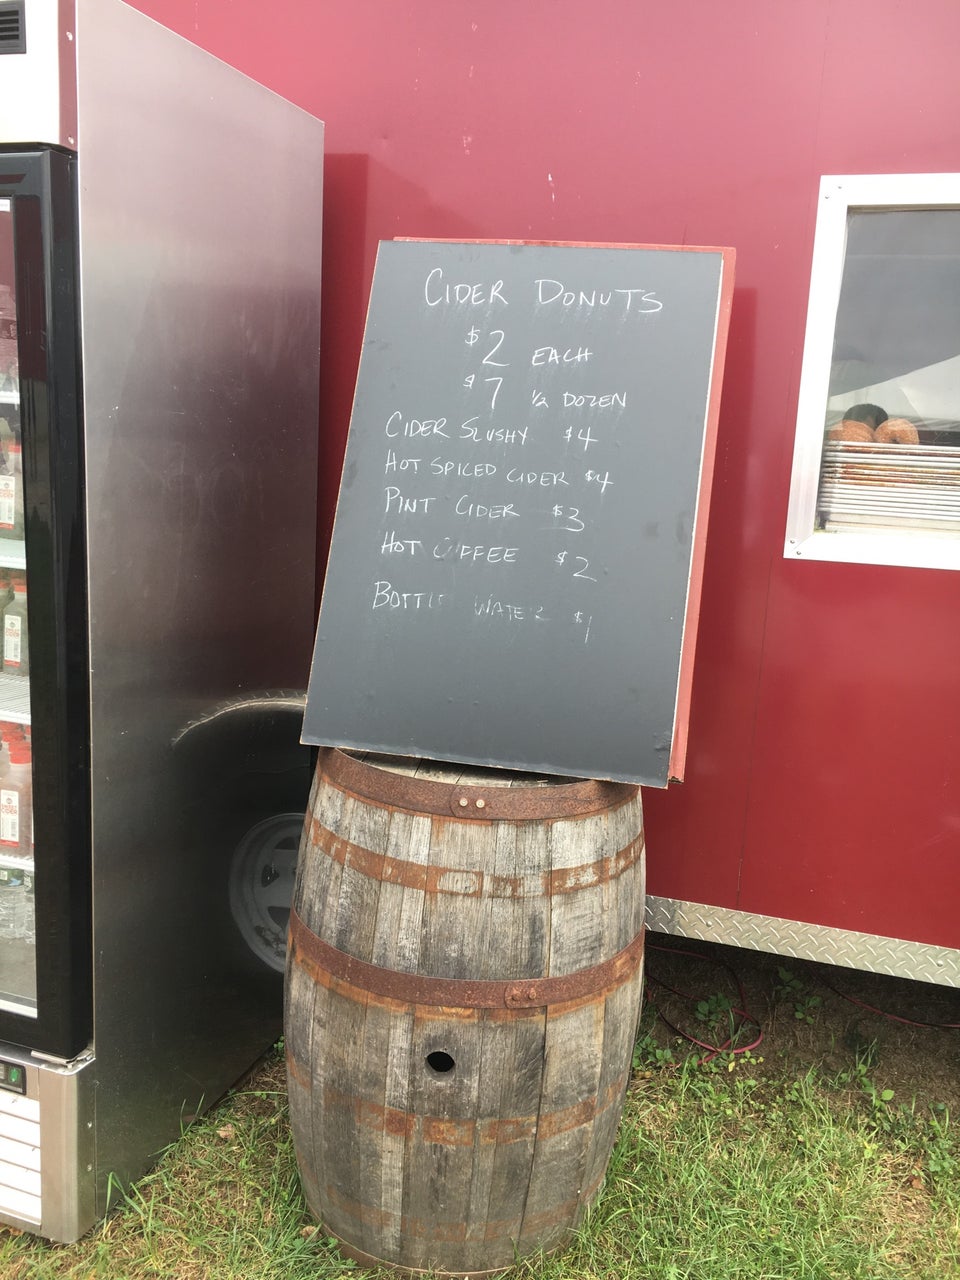 CIDER DONUTS
$2 EACH
$7 1/2 DOZEN
CIDER SLUSHY $4
HOT SPICED CIDER $4
PINT CIDER $3
HOT COFFEE $2
BOTTLE WATER $1